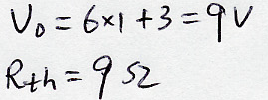 V₀ = 6×1 + 3 = 9V
Rth = 9 Ω